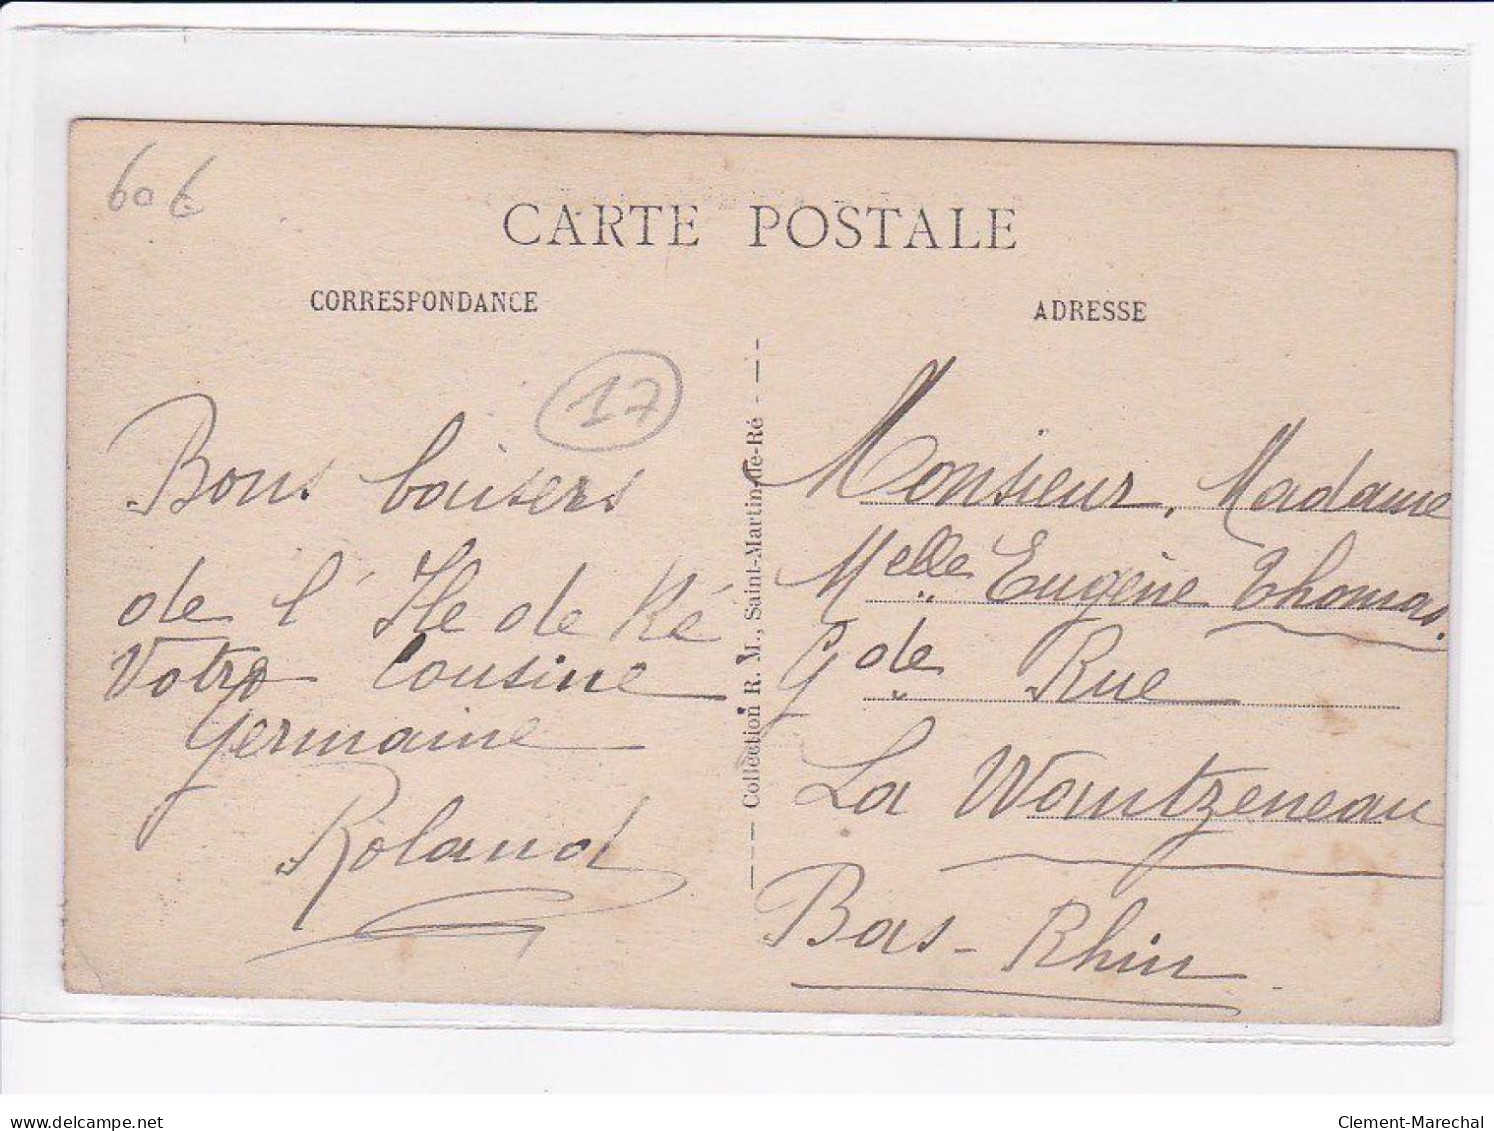 60€
CARTE POSTALE
CORRESPONDANCE
ADRESSE
17
Bons baisers
de l'Ile de Ré
Votre cousine
Germaine
Roland
Collection R. M., Saint-Martin-de-Ré
Monsieur, Madame
Melle Eugène Thomas.
Gde Rue
La Wantzeneau
Bas-Rhin
delcampe.net
Clement-Marechal